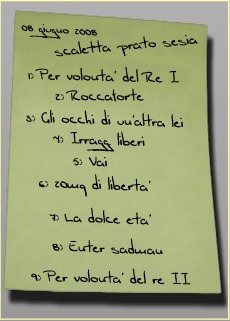 08 giugno 2008
scaletta prato sesia
1) Per volontà del Re I
2) Roccaforte
3) Gli occhi di un'altra lei
4) Irragg liberi
5) Vai
6) 20mg di libertà
7) La dolce età
8) Enter sadman
9) Per volontà del re II